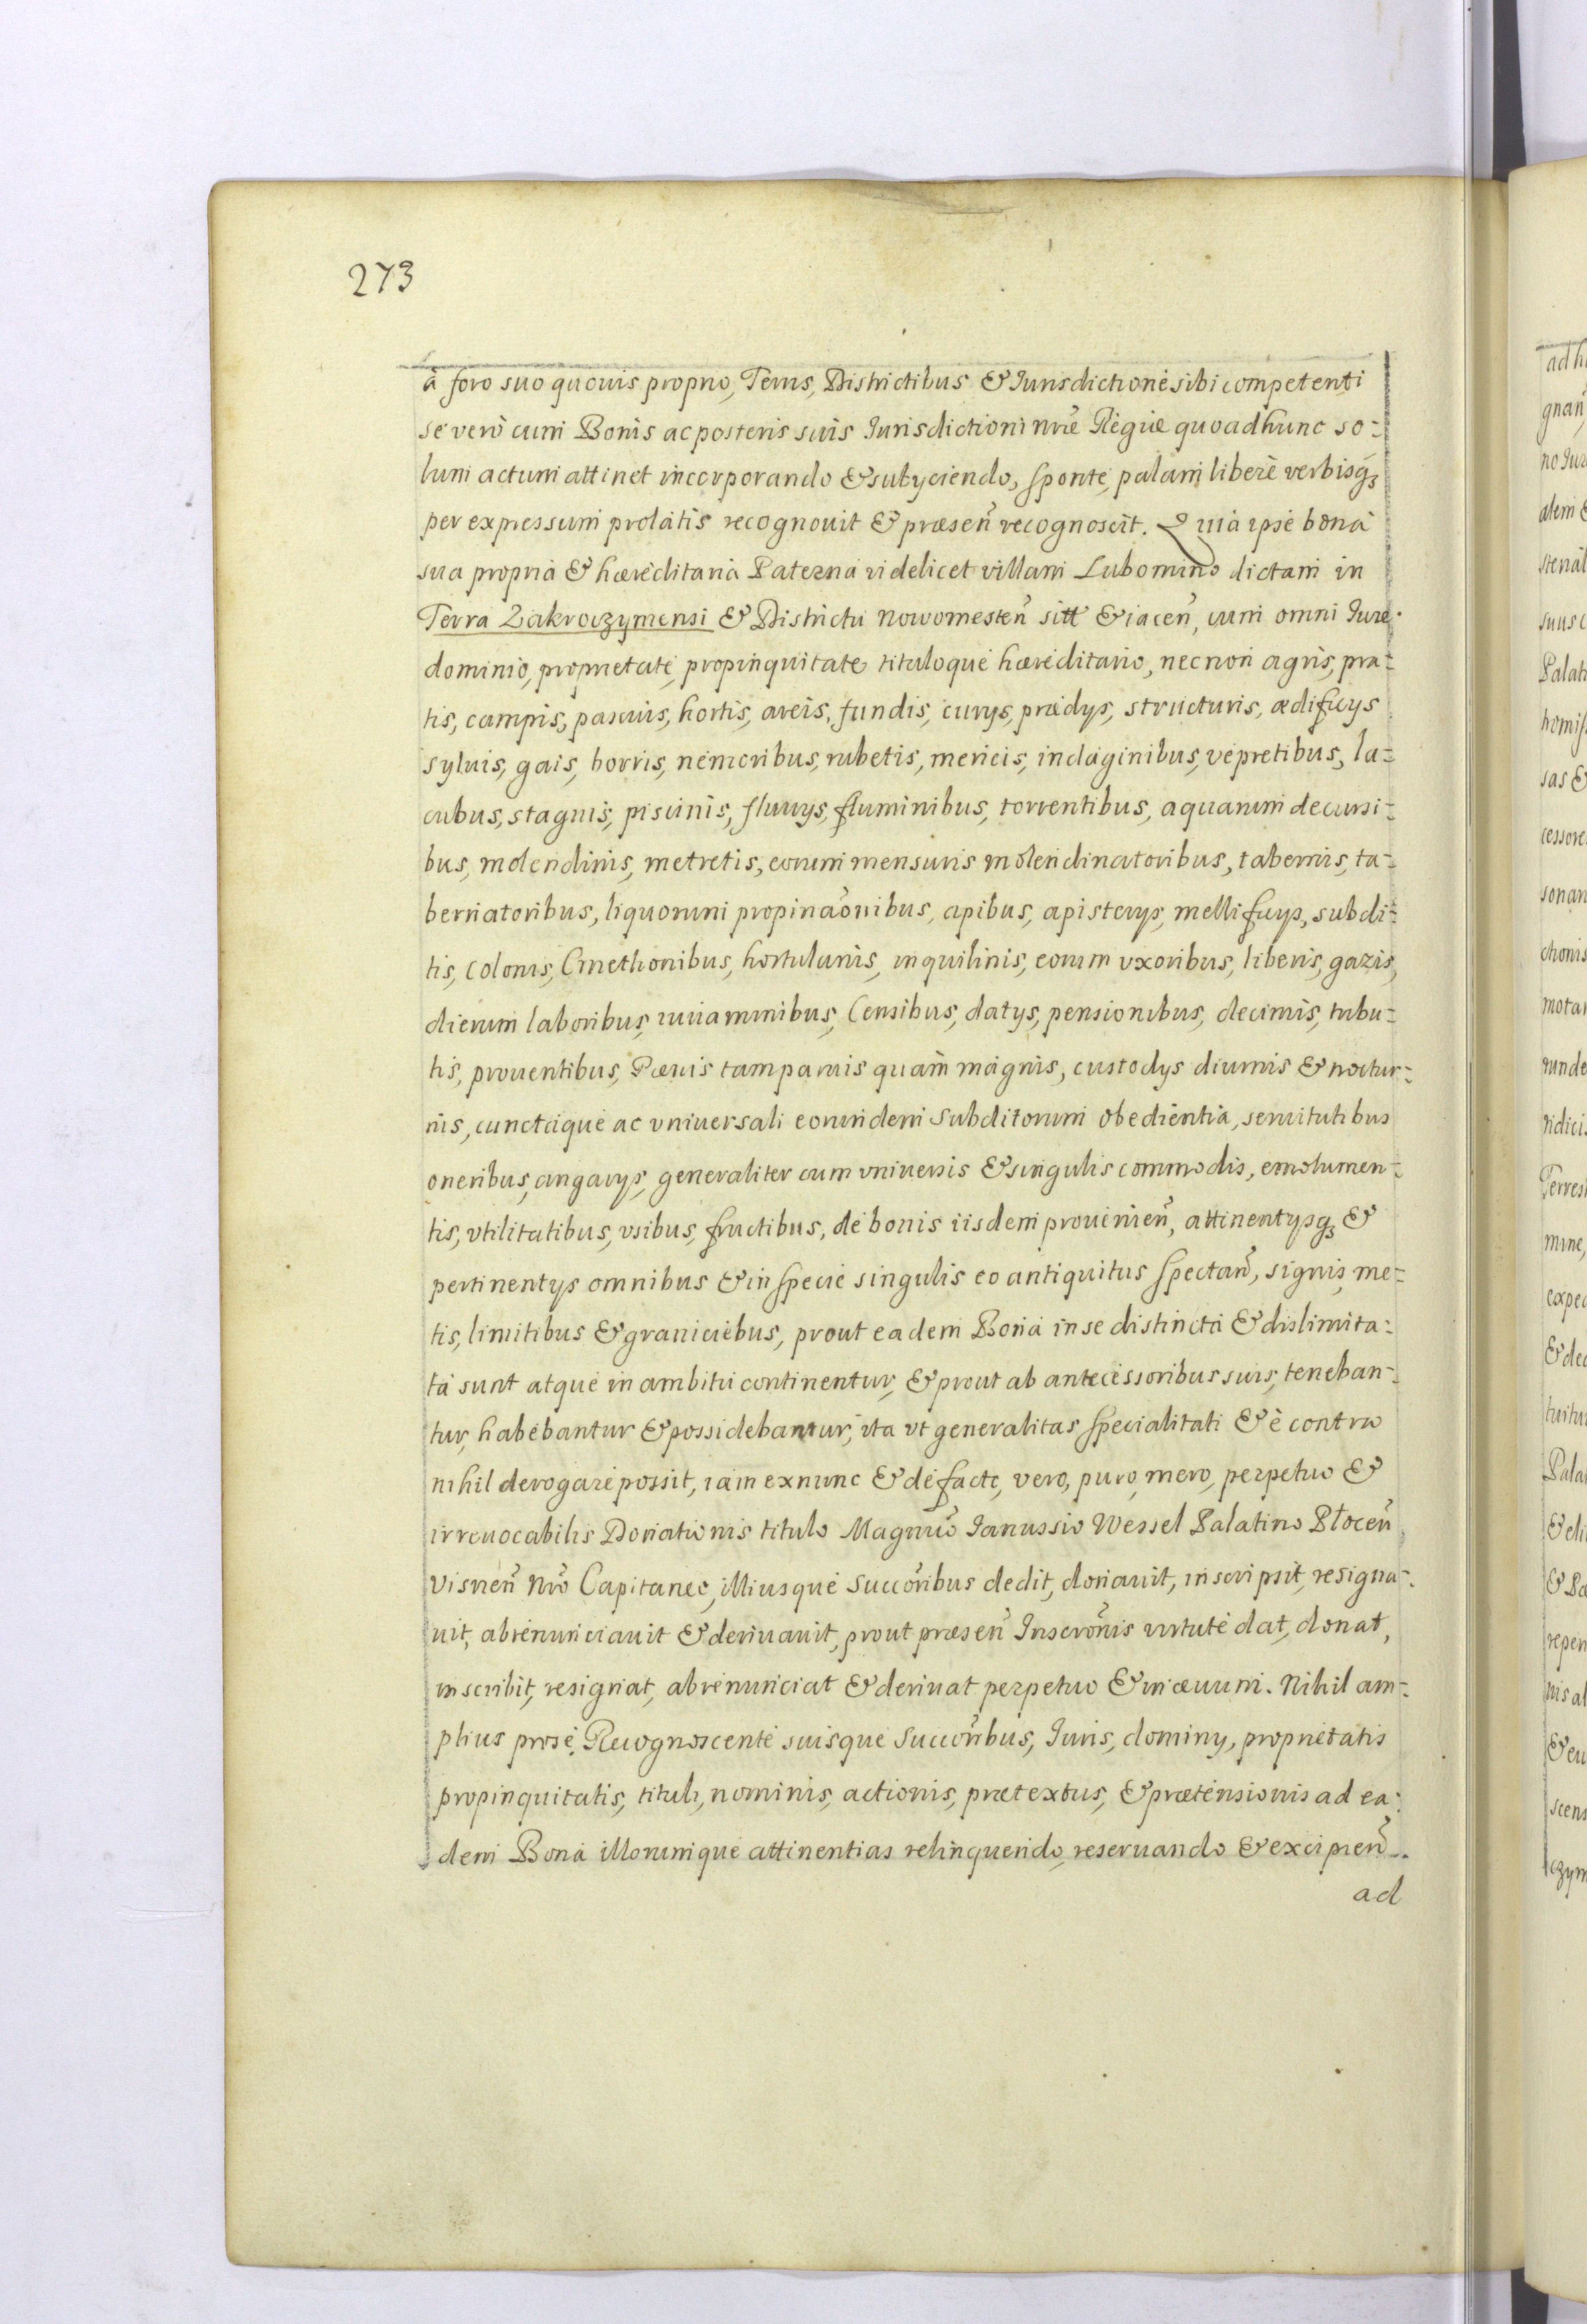 273
à foro suo quouis proprio, Terris, Districtibus & Iurisdictione sibi competenti
se vero cum Bonis ac posteris suis Iurisdictioni nrae Regiae quoad hunc so=
lum actum attinet incorporando & subyciendo, sponte, palam libere verbisq3
per expressum prolatis recognouit & praesen recognoscit. Quia ipse bona
sua propria & haereditaria Paterna videlicet villam Lubomino dictam in
Terra Zakroczymensi & Districtu Nowomesten sitt & iacen, cum omni Iure
dominio, proprietate, propinquitate tituloque haereditario, necnon agris, pra=
tis, campis, pascuis, hortis, areis, fundis, curys, praedys, structuris, aedificys
syluis, gais, borris, nemoribus, rubetis, mericis, indaginibus, vepretibus, la=
cubus, stagnis, piscinis, fluuys, fluminibus, torrentibus, aquarum decursi=
bus, molendinis, metretis, eorum mensuris molendinatoribus, tabernis, ta=
bernatoribus, liquorum propinaonibus, apibus, apisterys, mellificys, subdi=
tis, colonis, Cmethonibus, hortulanis, inquilinis, eorum vxoribus, liberis, gazis,
dierum laboribus, iuuaminibus, Censibus, datys, pensionibus, decimis, tribu=
tis, prouentibus, Paenis tam paruis quam magnis, custodys diurnis & noctur=
nis, cunctaque ac vniuersali eorundem subditorum obedientia, seruitutibus
oneribus, angarys, generaliter cum vniuersis & singulis commodis, emolumen=
tis, vtilitatibus, vsibus, fructibus, de bonis iisdem prouenien, attinentysq3 &
pertinentys omnibus & in specie singulis eo antiquitus spectan, signis, me=
tis, limitibus & graniciebus, prout eadem Bona in se distincta & dislimita=
ta sunt atque in ambitu continentur, & prout ab antecessoribus suis, teneban=
tur, habebantur & possidebantur, ita vt generalitas specialitati & è contra
nihil derogare possit, iam exnunc & de facto, vero, puro, mero, perpetuo &
irreuocabilis Donationis titulo Magnco Ianussio Wessel Palatino Plocen
Visnen nro Capitaneo, illiusque succoribus dedit, donauit, inscripsit, resigna=
uit, abrenunciauit & deriuauit, prout praesen Inscronis virtute dat, donat,
inscribit, resignat, abrenunciat & deriuat perpetuo & in aeuum. Nihil am=
plius pro se Recognoscente suisque succoribus, Iuris, dominy, proprietatis
propinquitatis, tituli, nominis, actionis, praetextus, & praetensionis ad ea=
dem Bona illorumque attinentias relinquendo, reseruando & excipien
ad